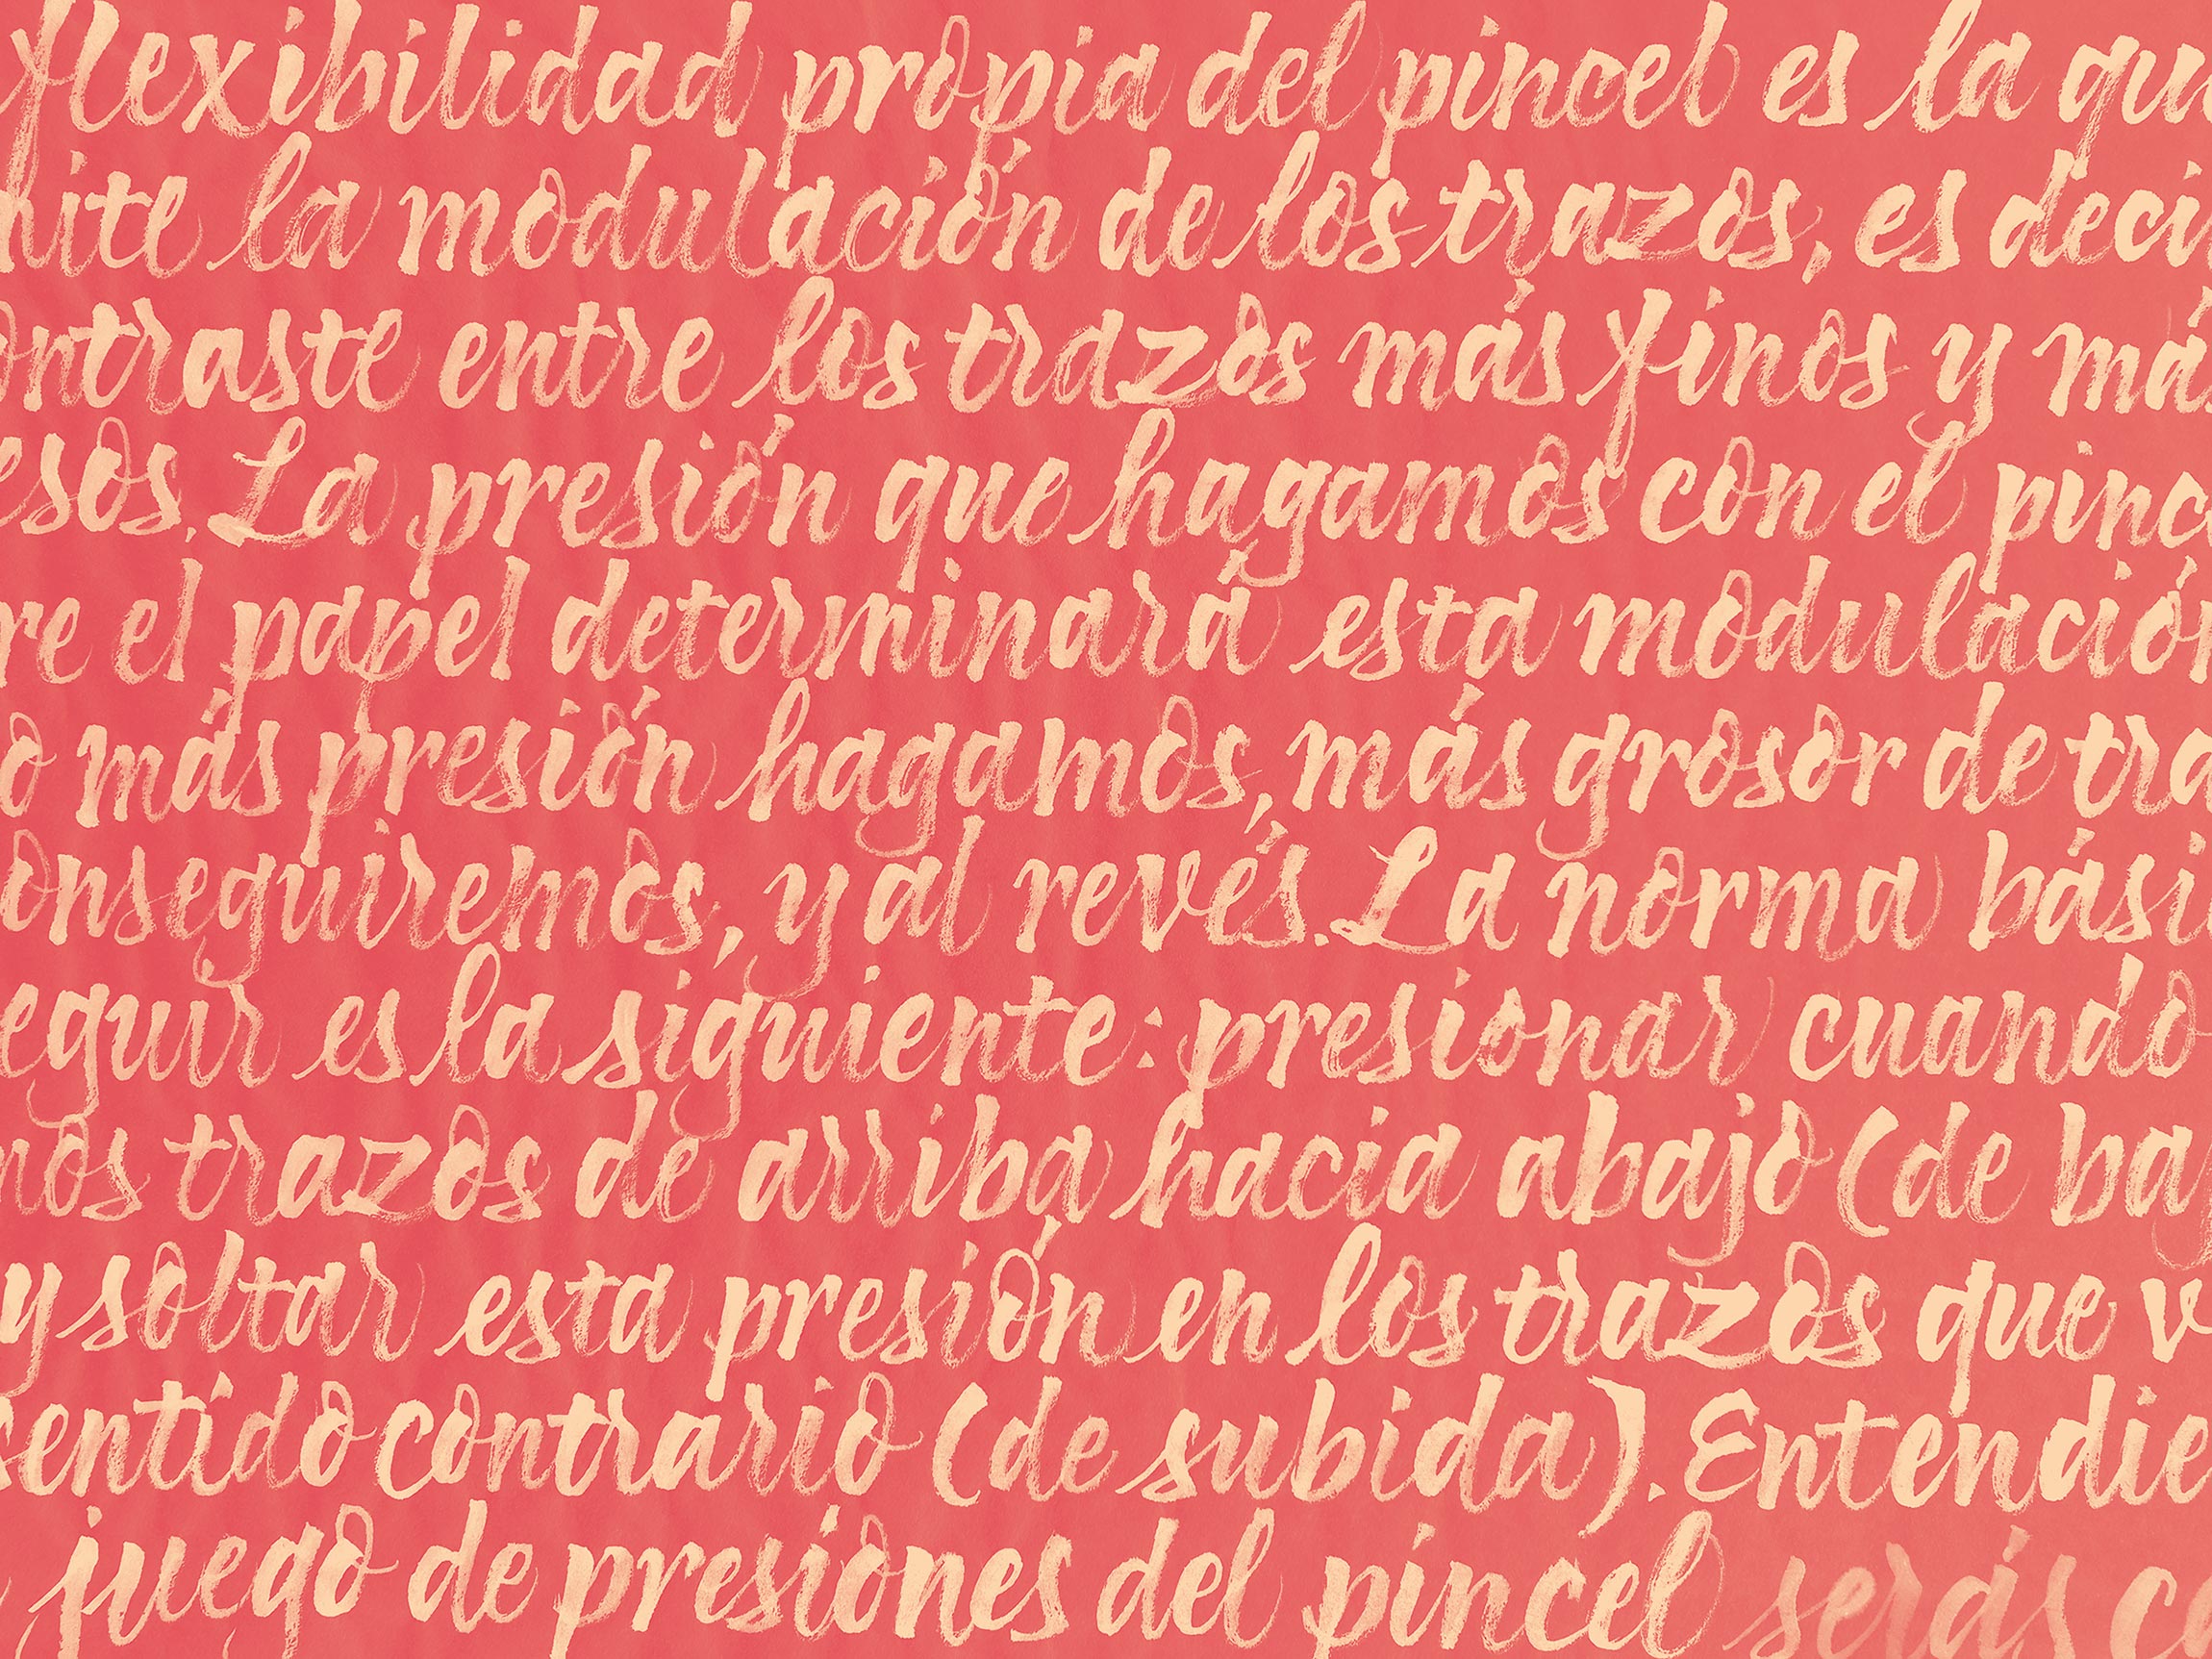 flexibilidad propia del pincel es la qu
mite la modulación de los trazos, es deci
ontraste entre los trazos más finos y má
esos. La presión que hagamos con el pinc
re el papel determinará esta modulación
o más presión hagamos, más grosor de tra
onseguiremos, y al revés. La norma bási
eguir es la siguiente: presionar cuando
mos trazos de arriba hacia abajo (de baj
y soltar esta presión en los trazos que v
sentido contrario (de subida). Entendie
juego de presiones del pincel serás ca